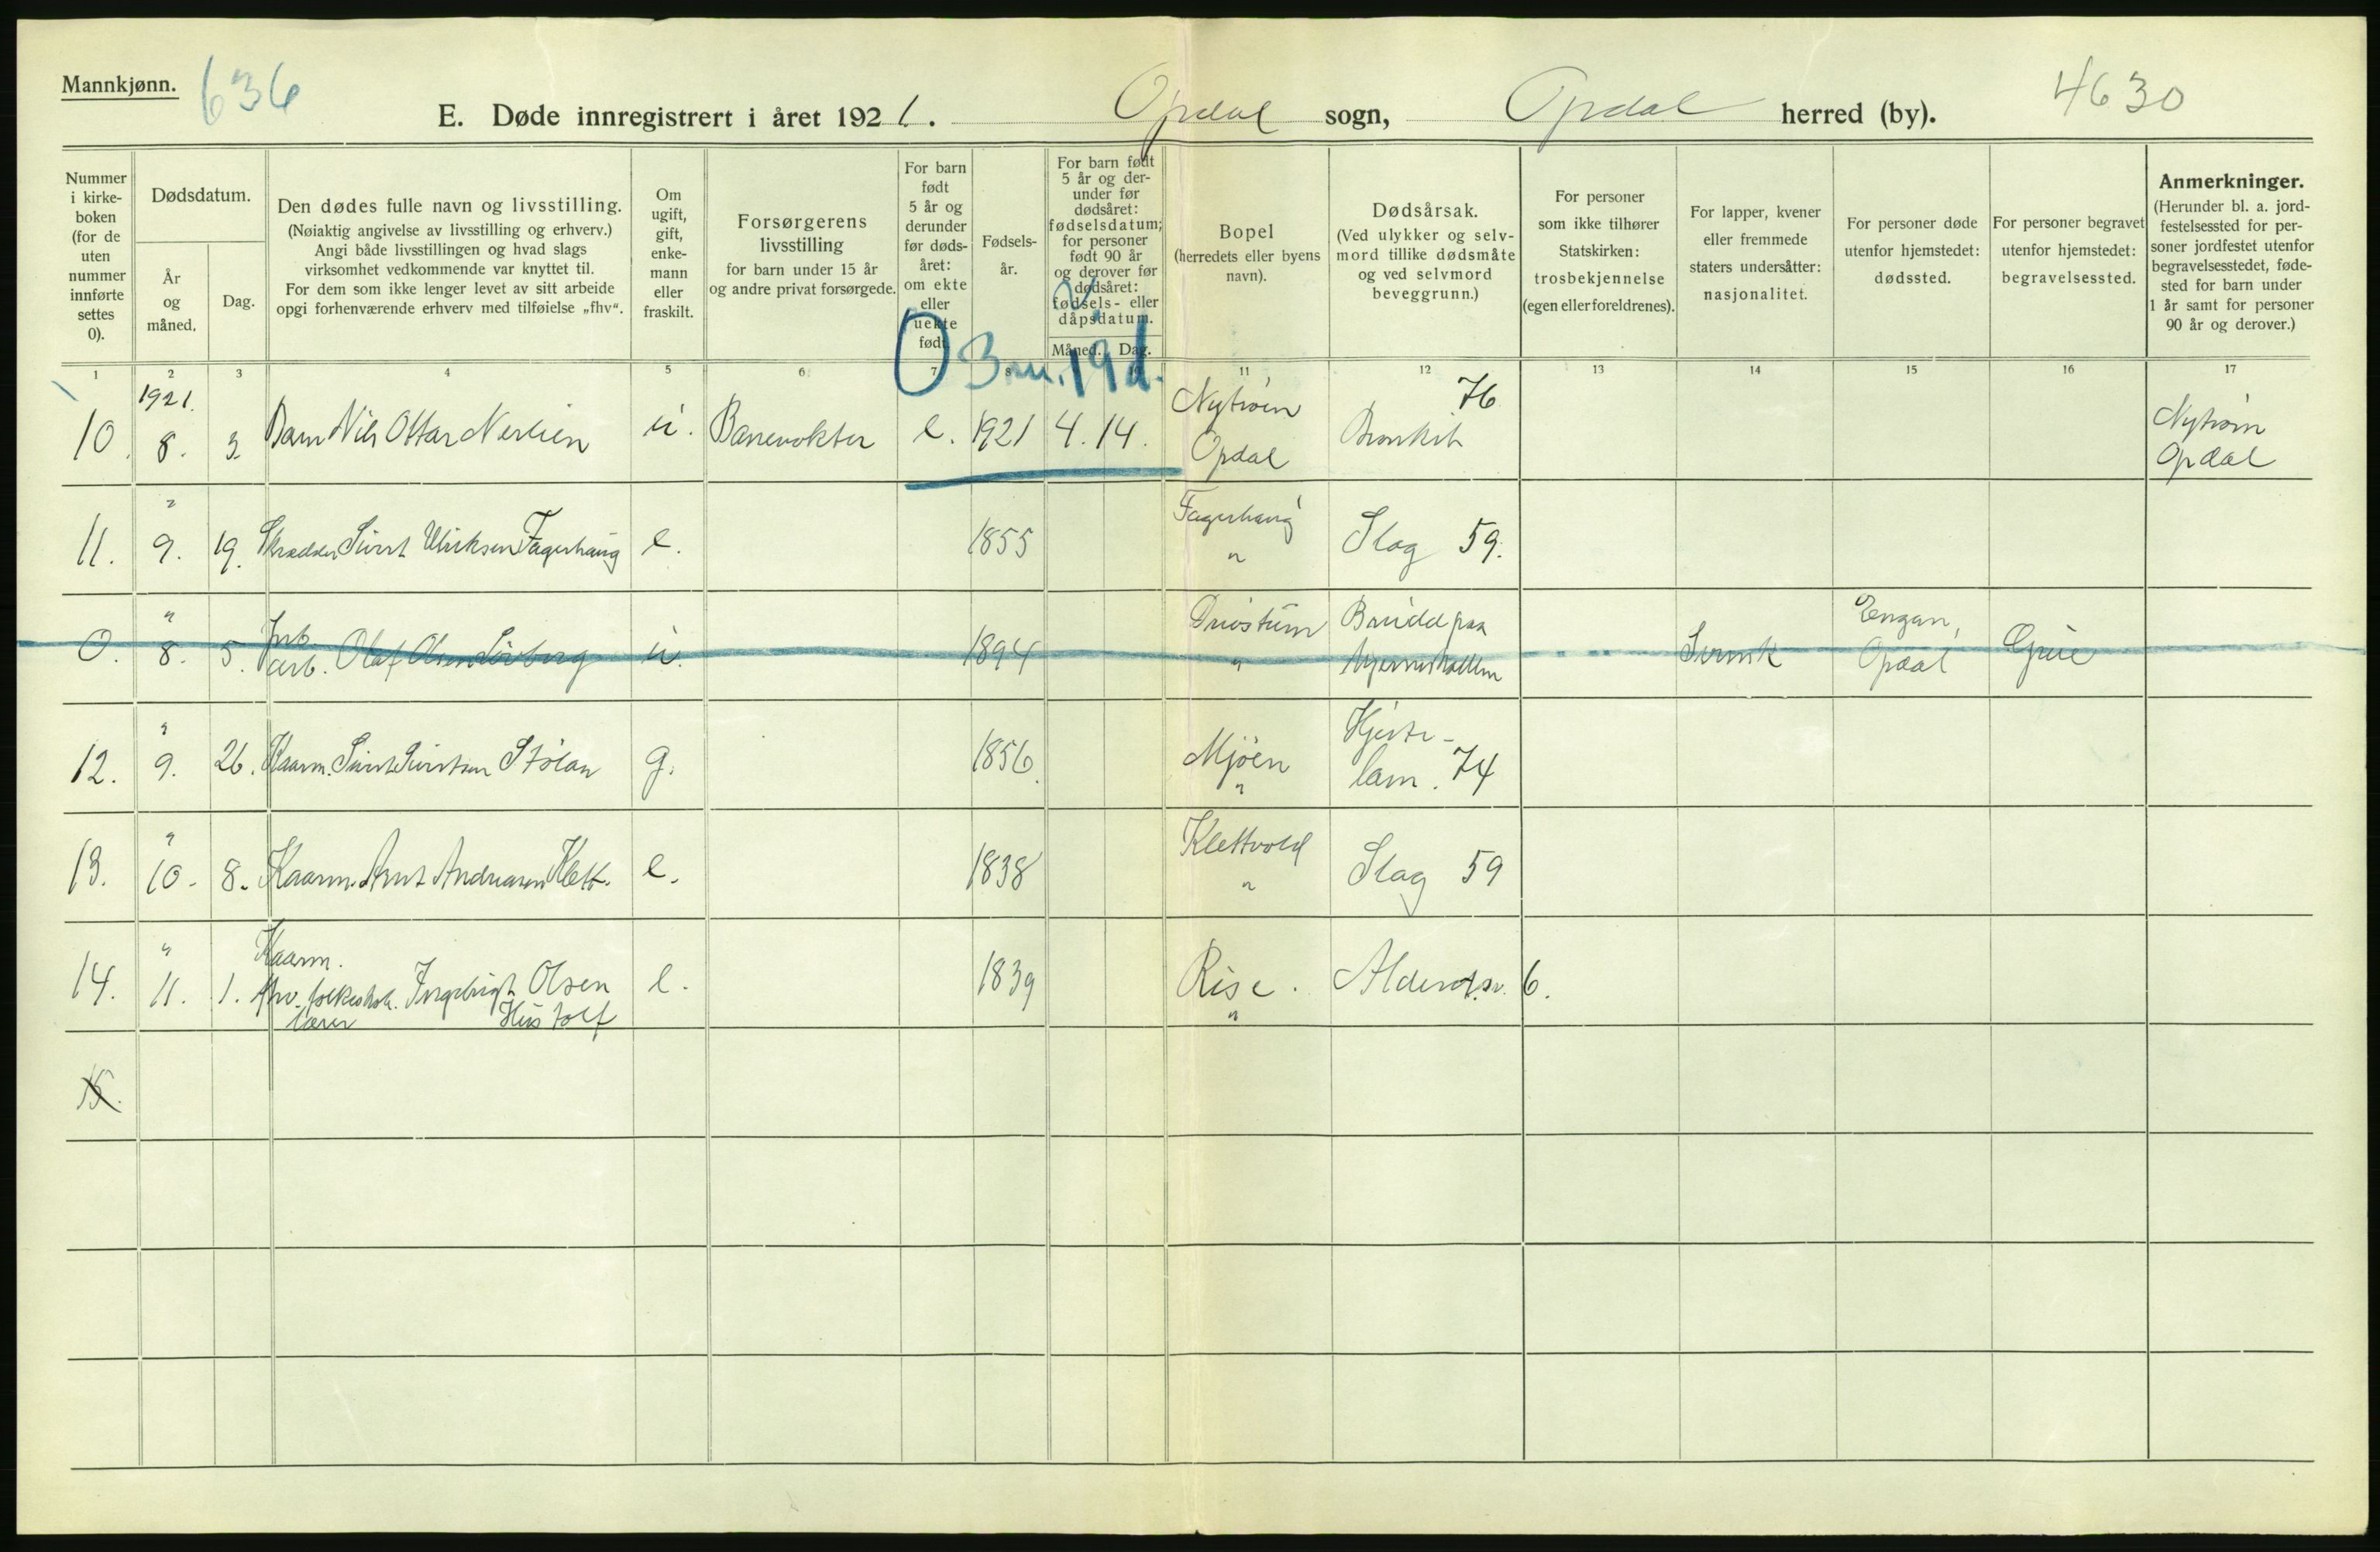 Mannkjønn.
636
E. Døde innregistrert i året 1921. Opdal sogn, Opdal herred (by).
4630
Nummer i kirke- boken (for de uten nummer innførte settes 0).
Dødsdatum.
År og måned.
Dag.
Den dødes fulle navn og livsstilling.
(Nøiaktig angivelse av livsstilling og erhverv.)
Angi både livsstillingen og hvad slags
virksomhet vedkommende var knyttet til.
For dem som ikke lenger levet av sitt arbeide
opgi forhenværende erhverv med tilføielse „fhv“.
Om ugift, gift, enke- mann eller fraskilt.
Forsørgerens
livsstilling
for barn under 15 år
og andre privat forsørgede.
For barn født 5 år og derunder før døds- året: om ekte eller uekte født.
Fødsels- år.
For barn født 5 år og der- under før dødsåret: fødselsdatum; for personer født 90 år og derover før dødsåret: fødsels- eller dåpsdatum.
Måned. Dag.
Bopel
(herredets eller byens
navn).
Dødsårsak.
(Ved ulykker og selv-
mord tillike dødsmåte
og ved selvmord
beveggrunn.)
For personer
som ikke tilhører
Statskirken:
trosbekjennelse
(egen eller foreldrenes).
For lapper, kvener
eller fremmede
staters undersåtter:
nasjonalitet.
For personer døde
utenfor hjemstedet:
dødssted.
For personer begravet
utenfor hjemstedet:
begravelsessted.
Anmerkninger.
(Herunder bl. a. jord-
festelsessted for per-
soner jordfestet utenfor
begravelsesstedet, føde-
sted for barn under
1 år samt for personer
90 år og derover.)
1 2 3 4 5 6 7 8 9 10 11 12 13 14 15 16 17
0 3 m. 19 d.
10. 1921. 8. 3. Barn Nils Ottar Nerlien u. Banevokter e. 1921 4. 14. Nytrøen Opdal Bronkit 76 Nytrøen Opdal
11. " 9. 19. Skrædder Sivert Ulriksen Fagerhaug e. 1855 Fagerhaug " Slag 59.
0. " 8. 5. Jrb. arb. Olaf Olsen u. 1894 Drivstuen " paa Svensk Engan, Opdal Grue
12. " 9. 26. Kaarm. Sivert Sivertsen Stølan g. 1856. Mjøen " Hjerte- lam. 74
13. " 10. 8. Kaarm. Arnt Andreasen Klett. e. 1838 Klettvold " Slag 59
14. " 11. 1. Kaarm. fhv. folkeskole. lærer Ingebrigt Olsen e. 1839 Rise. " Alderd.sv. 6.
15.